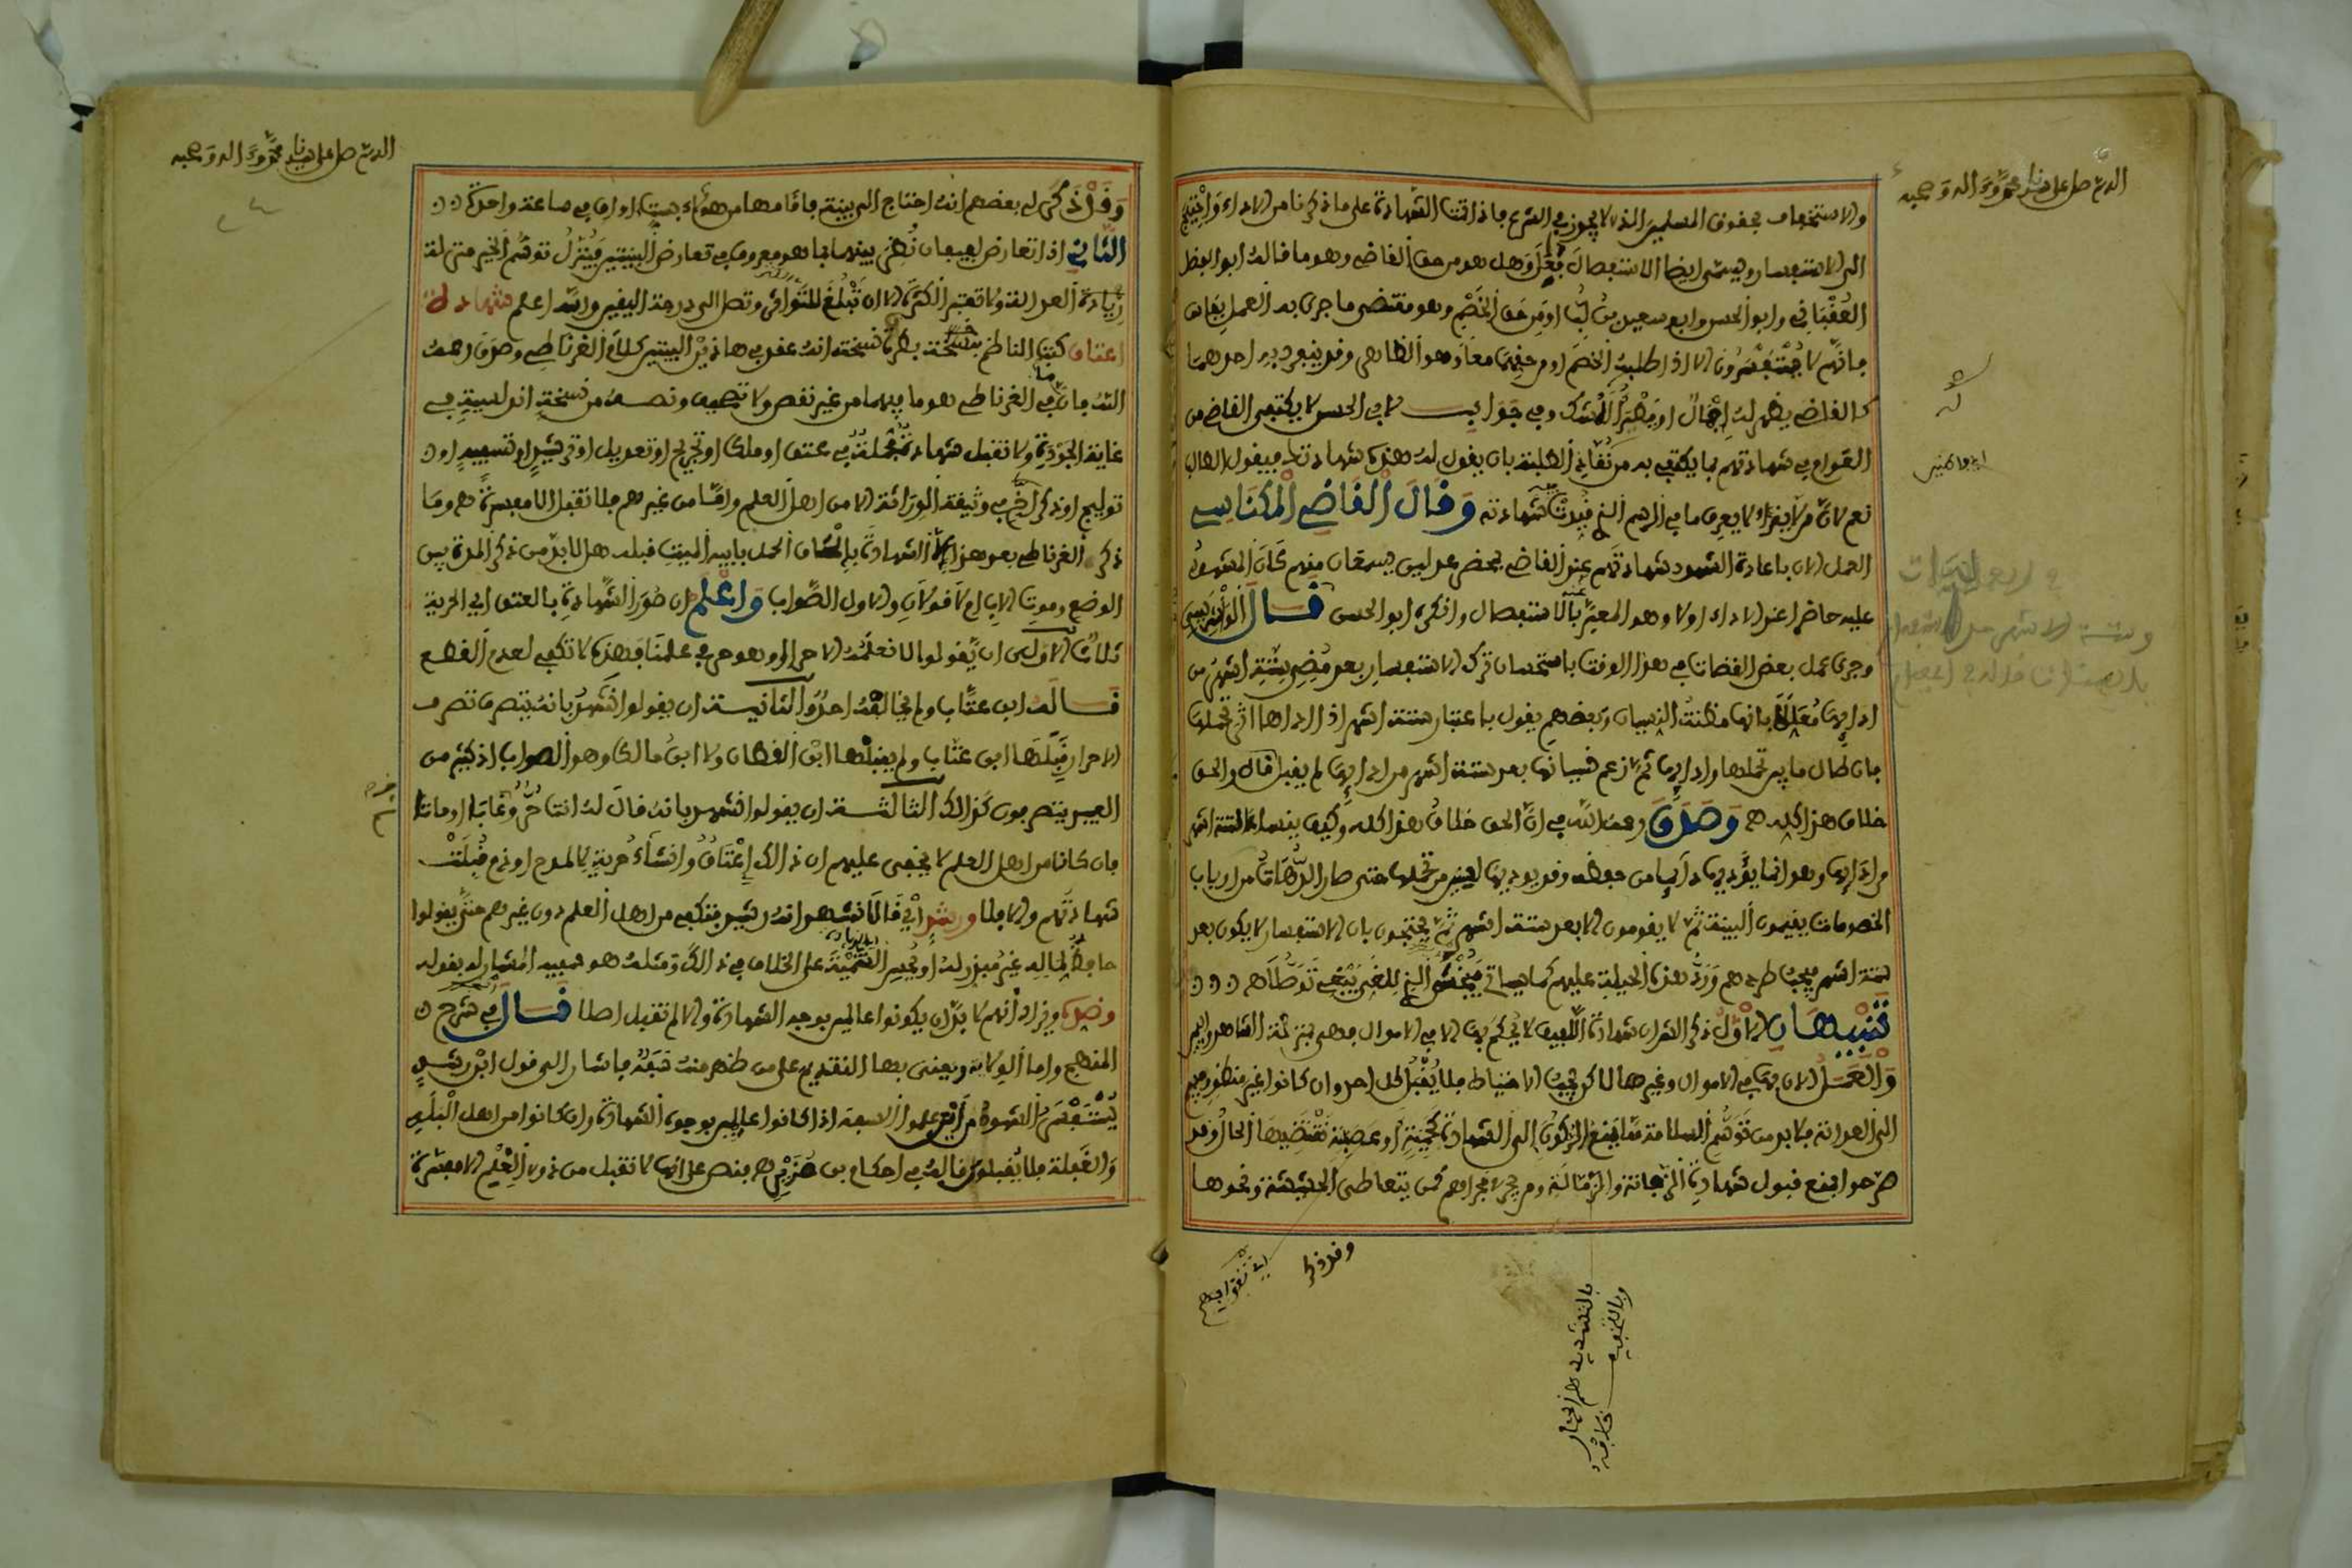 اللهم صل على سيدنا محمد وءاله وصحبه
والاستخفاف بحقوق المسلمين الذي لا يجوز في الشرع فإذا تمت الشهادة على ما ذكرنا من الاداء
الى الاستفسار ويسمى ايضا الاستفصال وهل هو من حق القاضي وهو ما قاله ابو الفضل
العقباني وابو الحسن وابو سعيد بن لب او من حق الخصم وهو مقتضى ما جرى به العمل بفاس
فإنهم لا يستفسرون الا اذا طلبه الخصم او من حقهما معا وهو الظاهر وقد ينفرد به احدهما
كالقاضي يظهر له اجمال او الشك وفي جواب لابي الحسن لا يكتفي القاضي من
العوام في شهادتهم بما يكتفي به من الطلبة بان يقول له هذه شهادتك فيقول الطالب
نعم لان من لا يقرأ لا يعرف ما في الرسم الخ شهادته وقال القاضي المكناسي
العمل الان باعادة الشهود شهادتهم عند القاضي بمحضر عدلين يسمعان منهم كان المشهود
عليه حاضرا عند الاداء اولا وهو المعبر عنه بالاستفصال وانكره ابو الحسن قال الونشريسي
وجرى عمل بعض القضات في هذا الوقت باستحسان ترك الاستفسار بعد مضي ستة اشهر من
ادائها معللا بانها مظنة النسيان وبعضهم يقول باعتبار ستة اشهر اذا اداها اثر تحملها
فان طال ما بين تحملها وادائها ثم زعم نسيانها بعد ستة اشهر من ادائها لم يقبل قال والحق
خلاف هذا كله هـ وصدق رحمه الله في ان الحق خلاف هذا كله وكيف ينساها لستة اشهر
من ادائها وهو انما يؤديها دائما من حفظه وقد يوديها لسنين من تحملها حتى صار الدهات من ارباب
الخصومات يقيمون البينة ثم لا يقومون الا بعد ستة اشهر ثم يحتجون بان الاستفسار لا يكون بعد
ستة اشهر فيجب طرحه ورد هذه الحيلة عليهم كما سياتي
تنبيهان الاول ذكر الشراح شهادة اللفيف لا الا في الاموال فهي بمنزلة الشاهد واليمين
والعمل الان بها في الاموال وغيرها لاكن يجب الاحتياط فلا يقبل كل احد وان كانوا غير منظور فيهم
الى العدالة فلا بد من توسم السلامة مما يمنع الركون الى الشهادة كحمية او عصبية تقتضيها الحال وقد
صرحوا بمنع قبول شهادة ومن جرى مجراهم كمن يتعاطى الحشيشة ونحوها
وقد ذكر
اللهم صل على سيدنا محمد وءاله وصحبه
وقد ذكر لي بعضهم انه احتاج الى بينة فاقامها من هؤلاء بستة اواقي في ساعة واحدة
الثاني اذا تعارض لفيفان نظر بينهما بما هو معروف في تعارض البينتين فينزل توسم الخير منزلة
زيادة العدالة ولا تعتبر الكثرة الا ان تبلغ للتواتر وتصل الى درجة اليقين والله اعلم شهادة
اعتاق كتب الناظم بنسخة بطرة نسخته انه عقد في هاذين البيتين كلام الغرناطي وصدق رحمه
الله فان ما في الغرناطي هو ما فيهما من غير نقص ولا تصحيف ونصه من نسخة انه لسنة في
غاية الجودة ولا تقبل شهادة مجملة في عتق او ملك او تجريح او تعديل او ترشيد او تسفيه او
توليج او ذكر الضرر في وثيقة الوراثة الا من اهل العلم واما من غيرهم فلا تقبل الا مفسرة هـ وما
ذكره الغرناطي بعد هذا في الشهادة بالحاق الحمل بابيه الميت قبله هل لا بد من ذكر المدة بين
الوضع وموت الاب ام لا قولان والاول الصواب واعلم ان صور الشهادة بالعتق اي الحرية
ثلاث الاولى ان يقولوا لا نعلمه الا حرا او هو حر في علمنا فهذه لا تكفي لعدم القطع
قاله ابن عتاب ولم يخالفه احد والثانية ان يقولوا نشهد بانه يتصرف تصرف
الاحرار قبلها ابن عتاب ولم يقبلها ابن القطان ولا ابن مالك وهو الصواب اذ كثير من
العبيد يتصرفون كذالك الثالثة ان يقولوا نشهد بانه قال له انت حر وغابا او ماتا
فان كانا من اهل العلم لا يخفى عليهم ان ذالك اعتاق وانشاء حرية لا لمدح او ذم قبلت
شهادتهم والا فلا ورشد اي قالا نشهد انه رشيد فتكفي من اهل العلم دون غيرهم حتى يقولوا
حافظ لماله غير مبذر له او يحسن التنمية على الخلاف في ذالك ومثله هو سفيه المشار له بقوله
وضده وزاد انهم لا بد ان يكونوا عالمين بوجه الشهادة والا لم تقبل اصلا قال في شرح
المنهج واما الولاية ويعنى بها التقديم على من ظهر منه سفه فاشار الى قول ابن رشد
يستفسر الشهود من اين علموا السفه اذا كانوا عالمين بوجوه الشهادة وان كانوا من اهل البله
والغفلة فلا يقبلون قاله في احكام بن هـ فنص على انها لا تقبل من ذوي العلم الا مفسرة